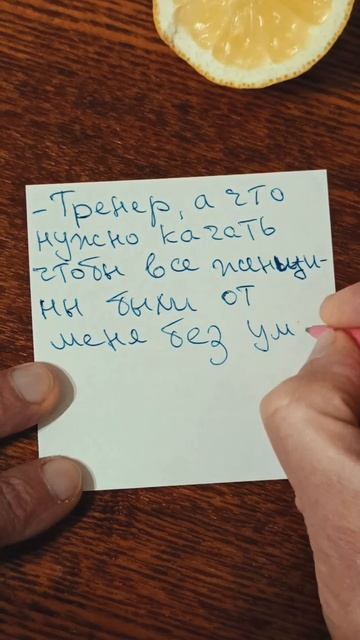 - Тренер, а что
нужно качать
чтобы все женщи-
ны были от
меня без ум